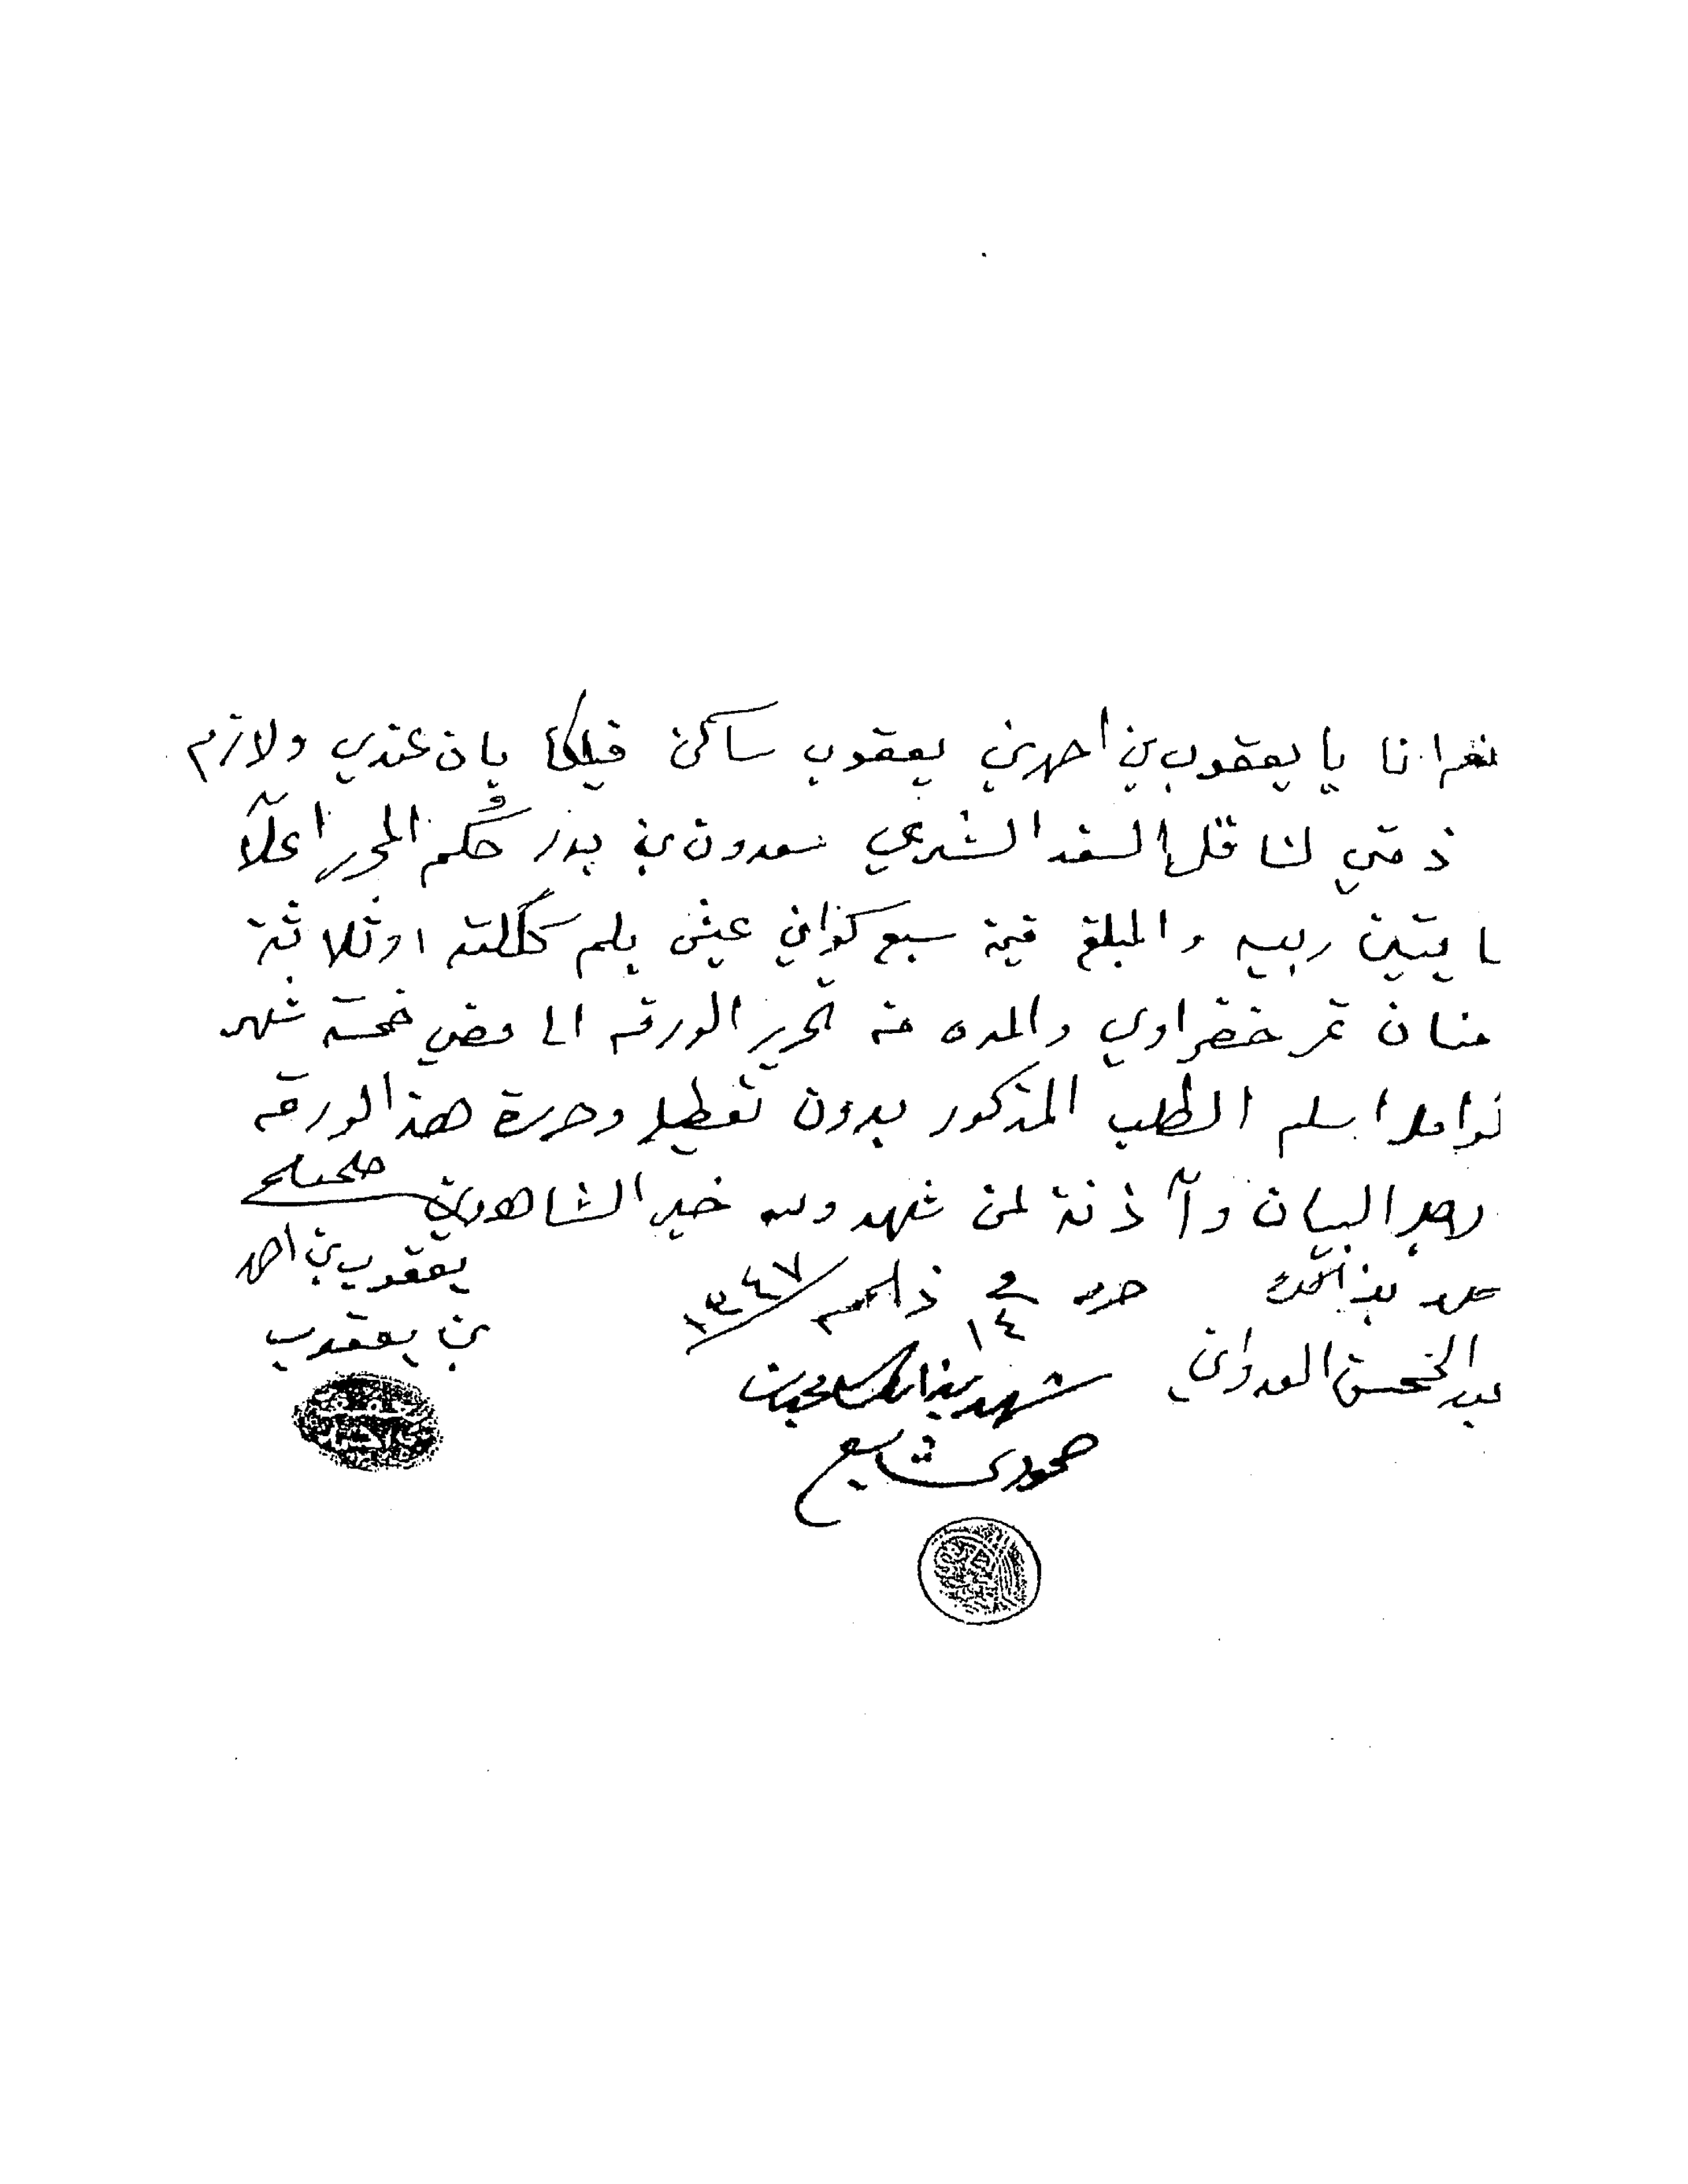 نعم انا يا يعقوب بن احمد بن يعقوب ساكن فيلكا بان عندي ولازم
ذمتي لناقل السند الشرعي سعدون بن بدر حكم المحرر اعلاً
مايتين ربيه والمبلغ قيمة سبع كواني عيش بلم كلكته او ثلاثة
منان تمر خضراوي والمده من تحرير الورقه الى مضي خمسة شهر
اسلم الطلب المذكور بدون تعطيل وحررة هذالورقه
لاجل البيان وآذنة لمن شهد والله خير الشاهدين صح صح
يعقوب بن احمد
بن يعقوب
حرر في ١٤ ذالحجه ١٣٤٧
شهد بذالك
عبد المحسن العدواني
شهد بذالك
حمود شايع